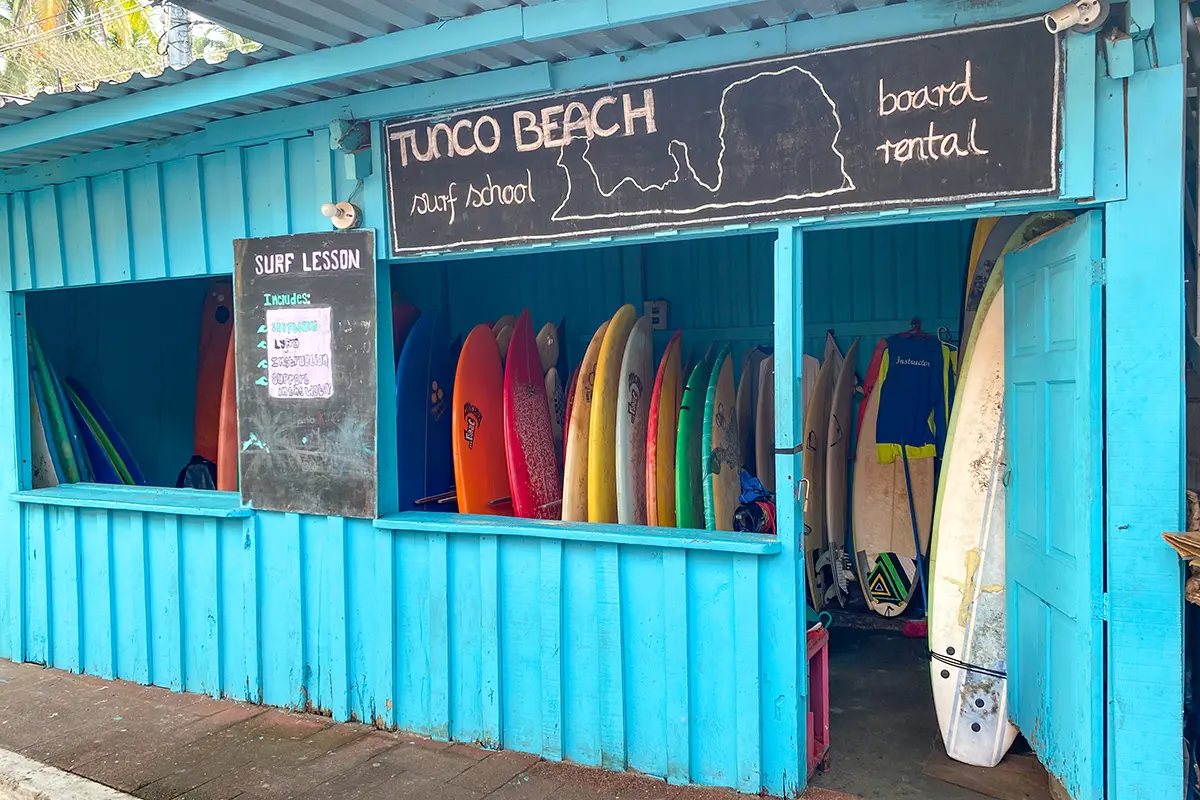 TUNCO BEACH
surf school
board
rental
SURF LESSON
Includes:
Surfboard
Lycra
Instruction
Support
Instructor